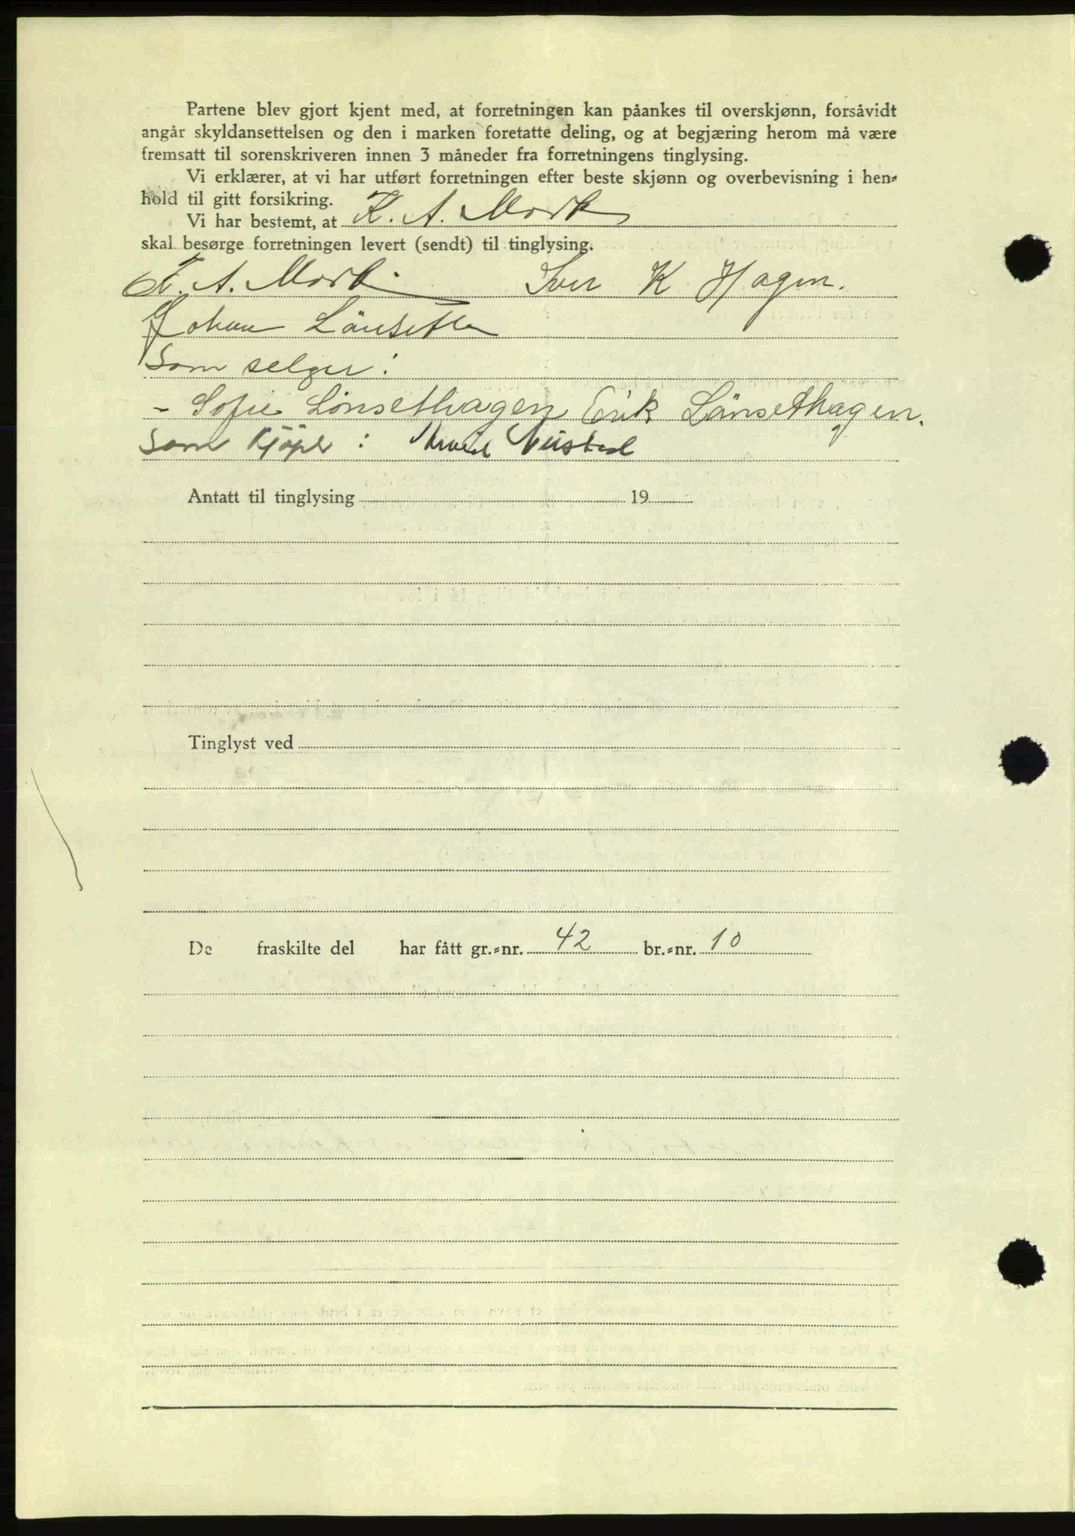 Partene blev gjort kjent med, at forretningen kan påankes til overskjønn, forsåvidt
angår skyldansettelsen og den i marken foretatte deling, og at begjæring herom må være
fremsatt til sorenskriveren innen 3 måneder fra forretningens tinglysing.
Vi erklærer, at vi har utført forretningen efter beste skjønn og overbevisning i hen-
hold til gitt forsikring.
Vi har bestemt, at K. A. Mork
skal besørge forretningen levert (sendt) til tinglysing.
K. A. Mork. Iver K Hagen.
Johan Länsetter
Som selger:
- Sofie Lönsethagen Erik Länsethagen.
Som kjöper: Arvid Neistad
Antatt til tinglysing 19
Tinglyst ved
De fraskilte del har fått gr.-nr. 42 br.-nr. 10